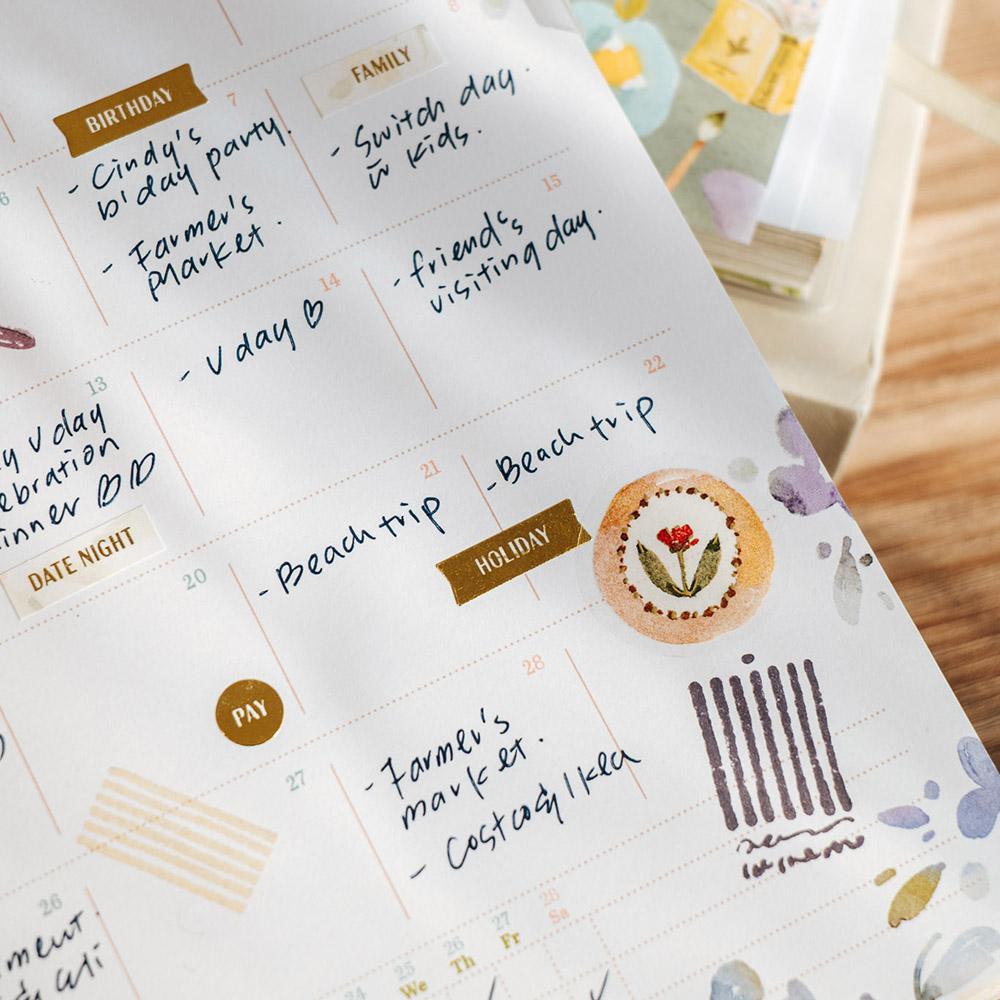 8
BIRTHDAY
7
- Cindy's
b'day party.
- Farmer's
Market.
FAMILY
- Switch day.
w̄ kids.
6
14
- V day
15
- friend's
visiting day.
13
y V day
ebration
inner
DATE NIGHT
21
- Beach trip
22
- Beach trip
HOLIDAY
20
PAY
28
- Farmer's
market.
- Costco/Ikea
27
26
ment
24
25
We
26
Th
27
Fr
28
Sa